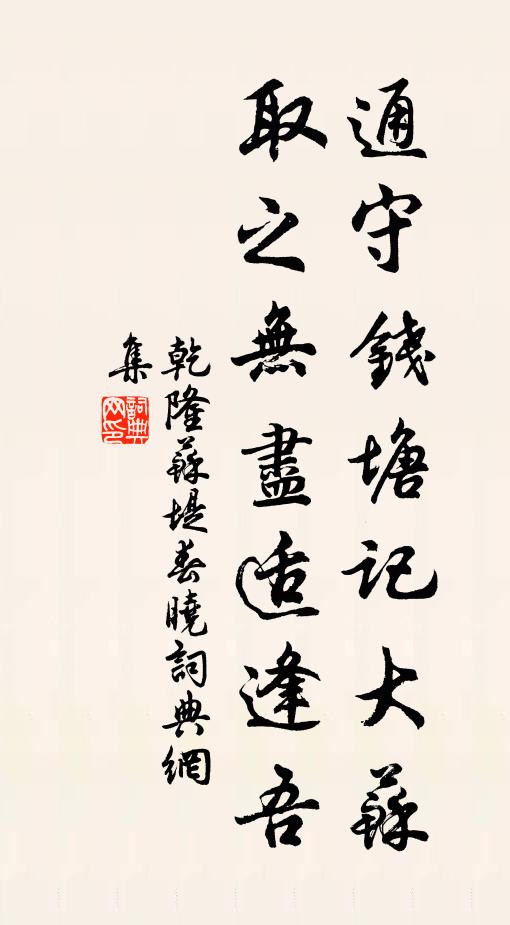 通守錢塘記大蘇
取之無盡适逢吾
乾隆蘇堤春曉詞典網
集
詞典
网印